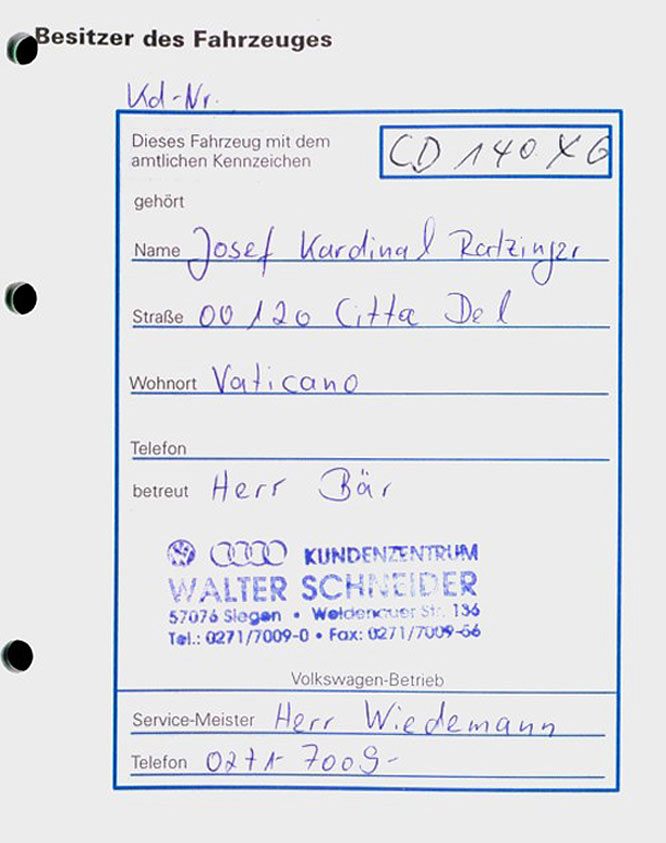 Besitzer des Fahrzeuges
Kd-Nr.
Dieses Fahrzeug mit dem
amtlichen Kennzeichen CD 140 X6
gehört
Name Josef Kardinal Ratzinger
Straße 00120 Citta Del
Wohnort Vaticano
Telefon
betreut Herr Bär
KUNDENZENTRUM
WALTER SCHNEIDER
57076 Siegen • Weidenauer Str. 136
Tel.: 0271/7009-0 • Fax: 0271/7009-66
Volkswagen-Betrieb
Service-Meister Herr Wiedemann
Telefon 0271-7009-